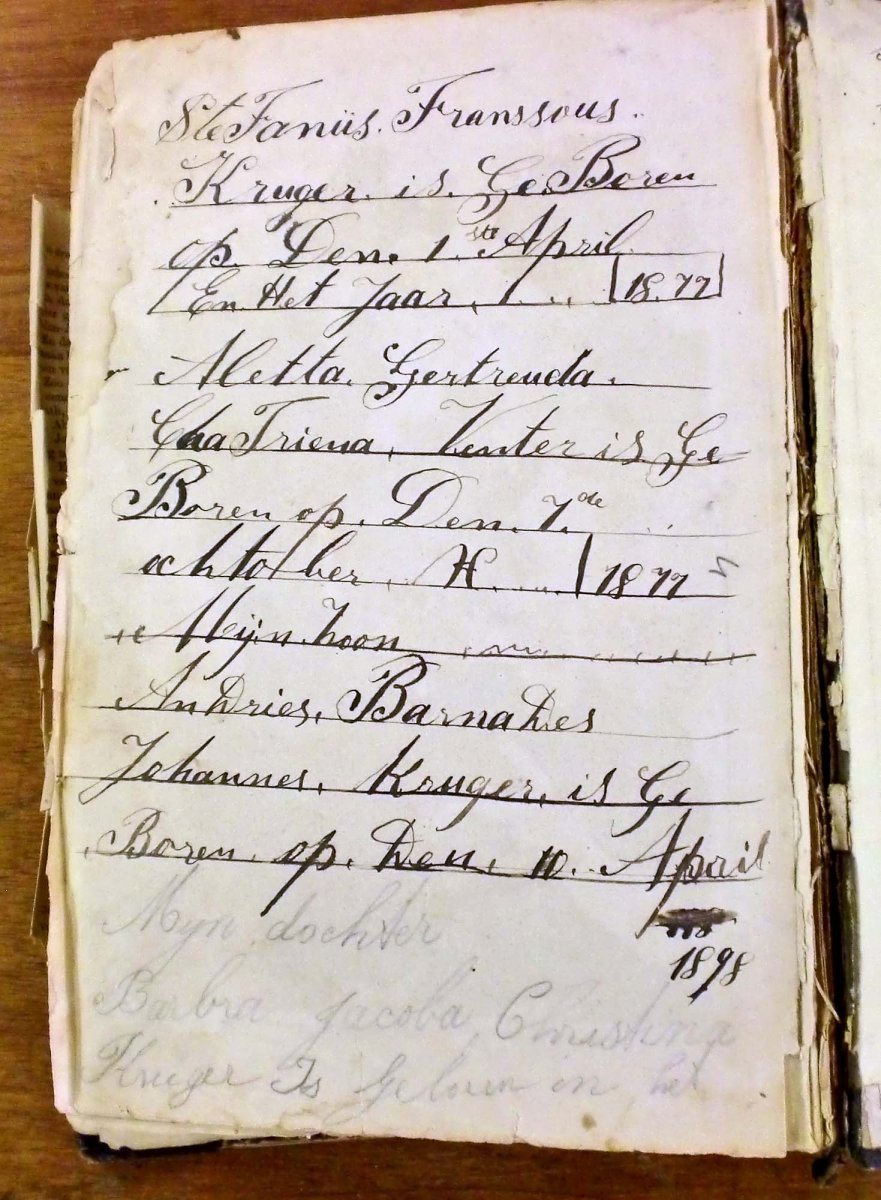 SteFanus. Franssous.
Kruger. is. Ge Boren
op. Den. 1ste April.
En Het Jaar, 18.77
Aletta. Gertreuda.
ChaTriena, Venter is Ge
Boren op. Den. 7.de
ochtober. H. 1877
Mijn. Zoon
AnDries, BarnaDes
Johannes, Kruger, is Ge
Boren. op. Den. 10. April
1898
Myn dochter
Barbra Jacoba Christina
Kruger Is Geboren in het